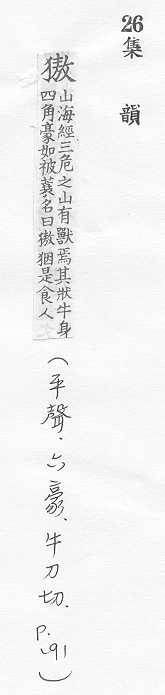 26集 韻
獓
山海經三危之山有獸焉其狀牛身
四角豪如被蓑名曰獓𤝻是食人
(平聲、六豪、牛刀切. P.191)